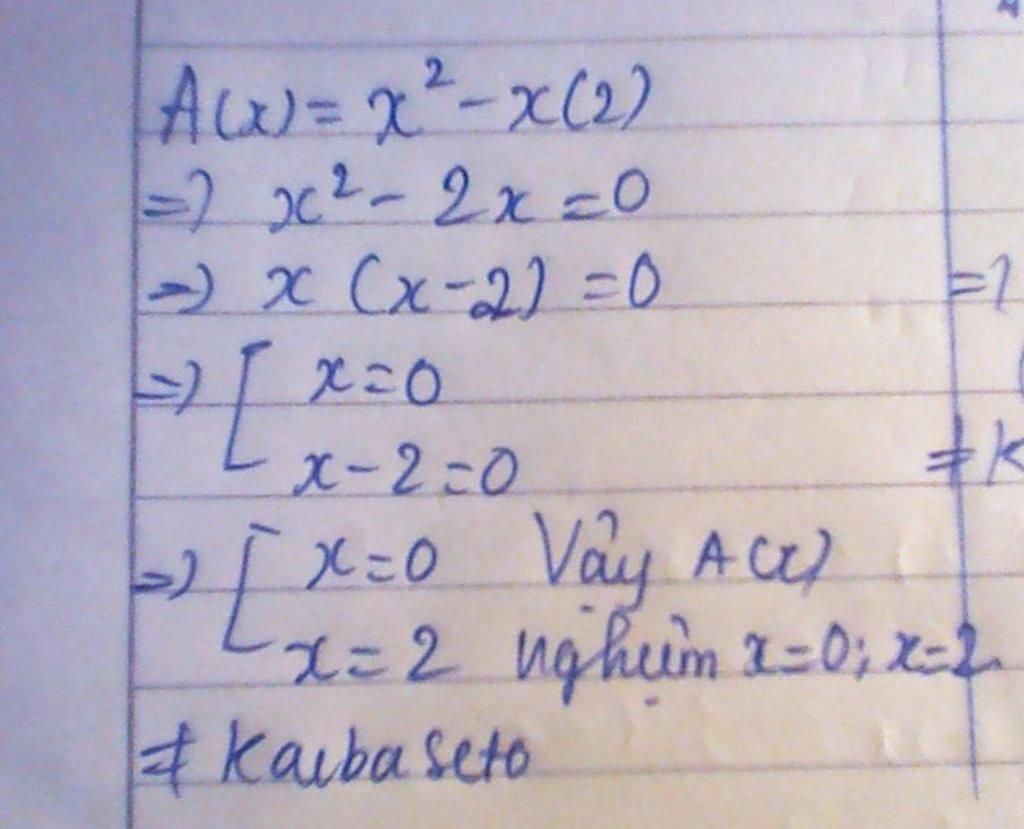 A(x) = x² - x(2)
=> x² - 2x = 0
=> x (x-2) = 0
=> [ x = 0
x - 2 = 0
=> [ x = 0 Vậy A(x)
x = 2 nghiệm x=0; x=2.
≠ Kaiba Seto
=>
≠ K